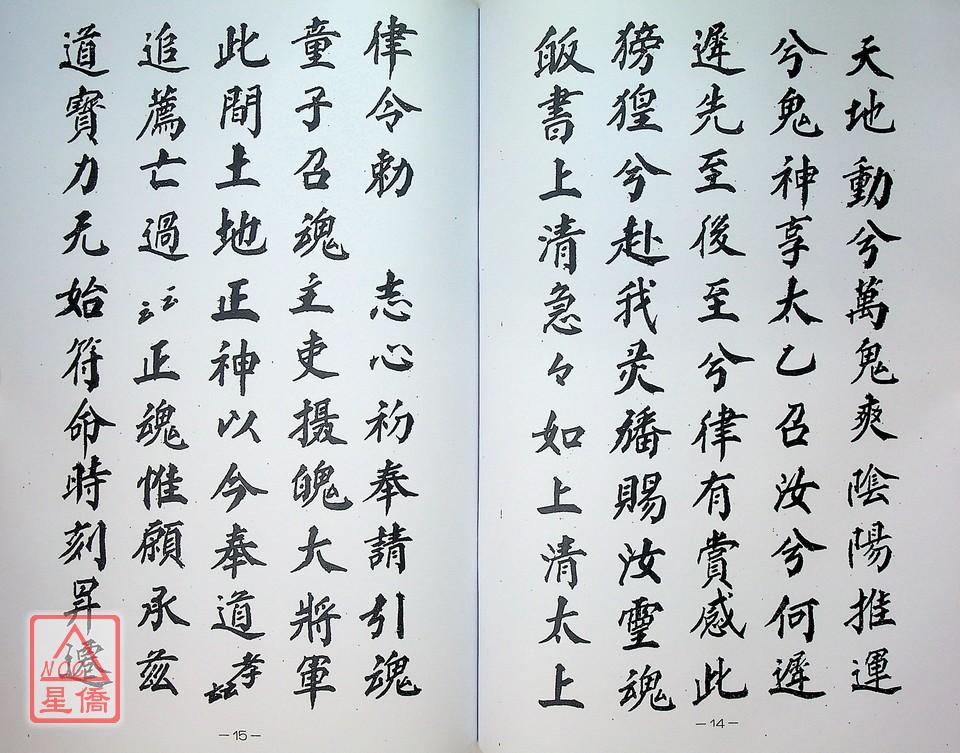 天地動兮萬鬼爽陰陽推運
兮鬼神享太乙召汝兮何遲
遲先至後至兮律有賞感此
猖狂兮赴我灵旛賜汝靈魂
皈書上清急々如上清太上
－14－
律令勅　志心初奉請引魂
童子召魂主吏摄魄大將軍
此間土地正神以今奉道孝
追薦亡過云云正魂惟願承茲
道寶力无始符命時刻昇遷
－15－
NCC
星僑